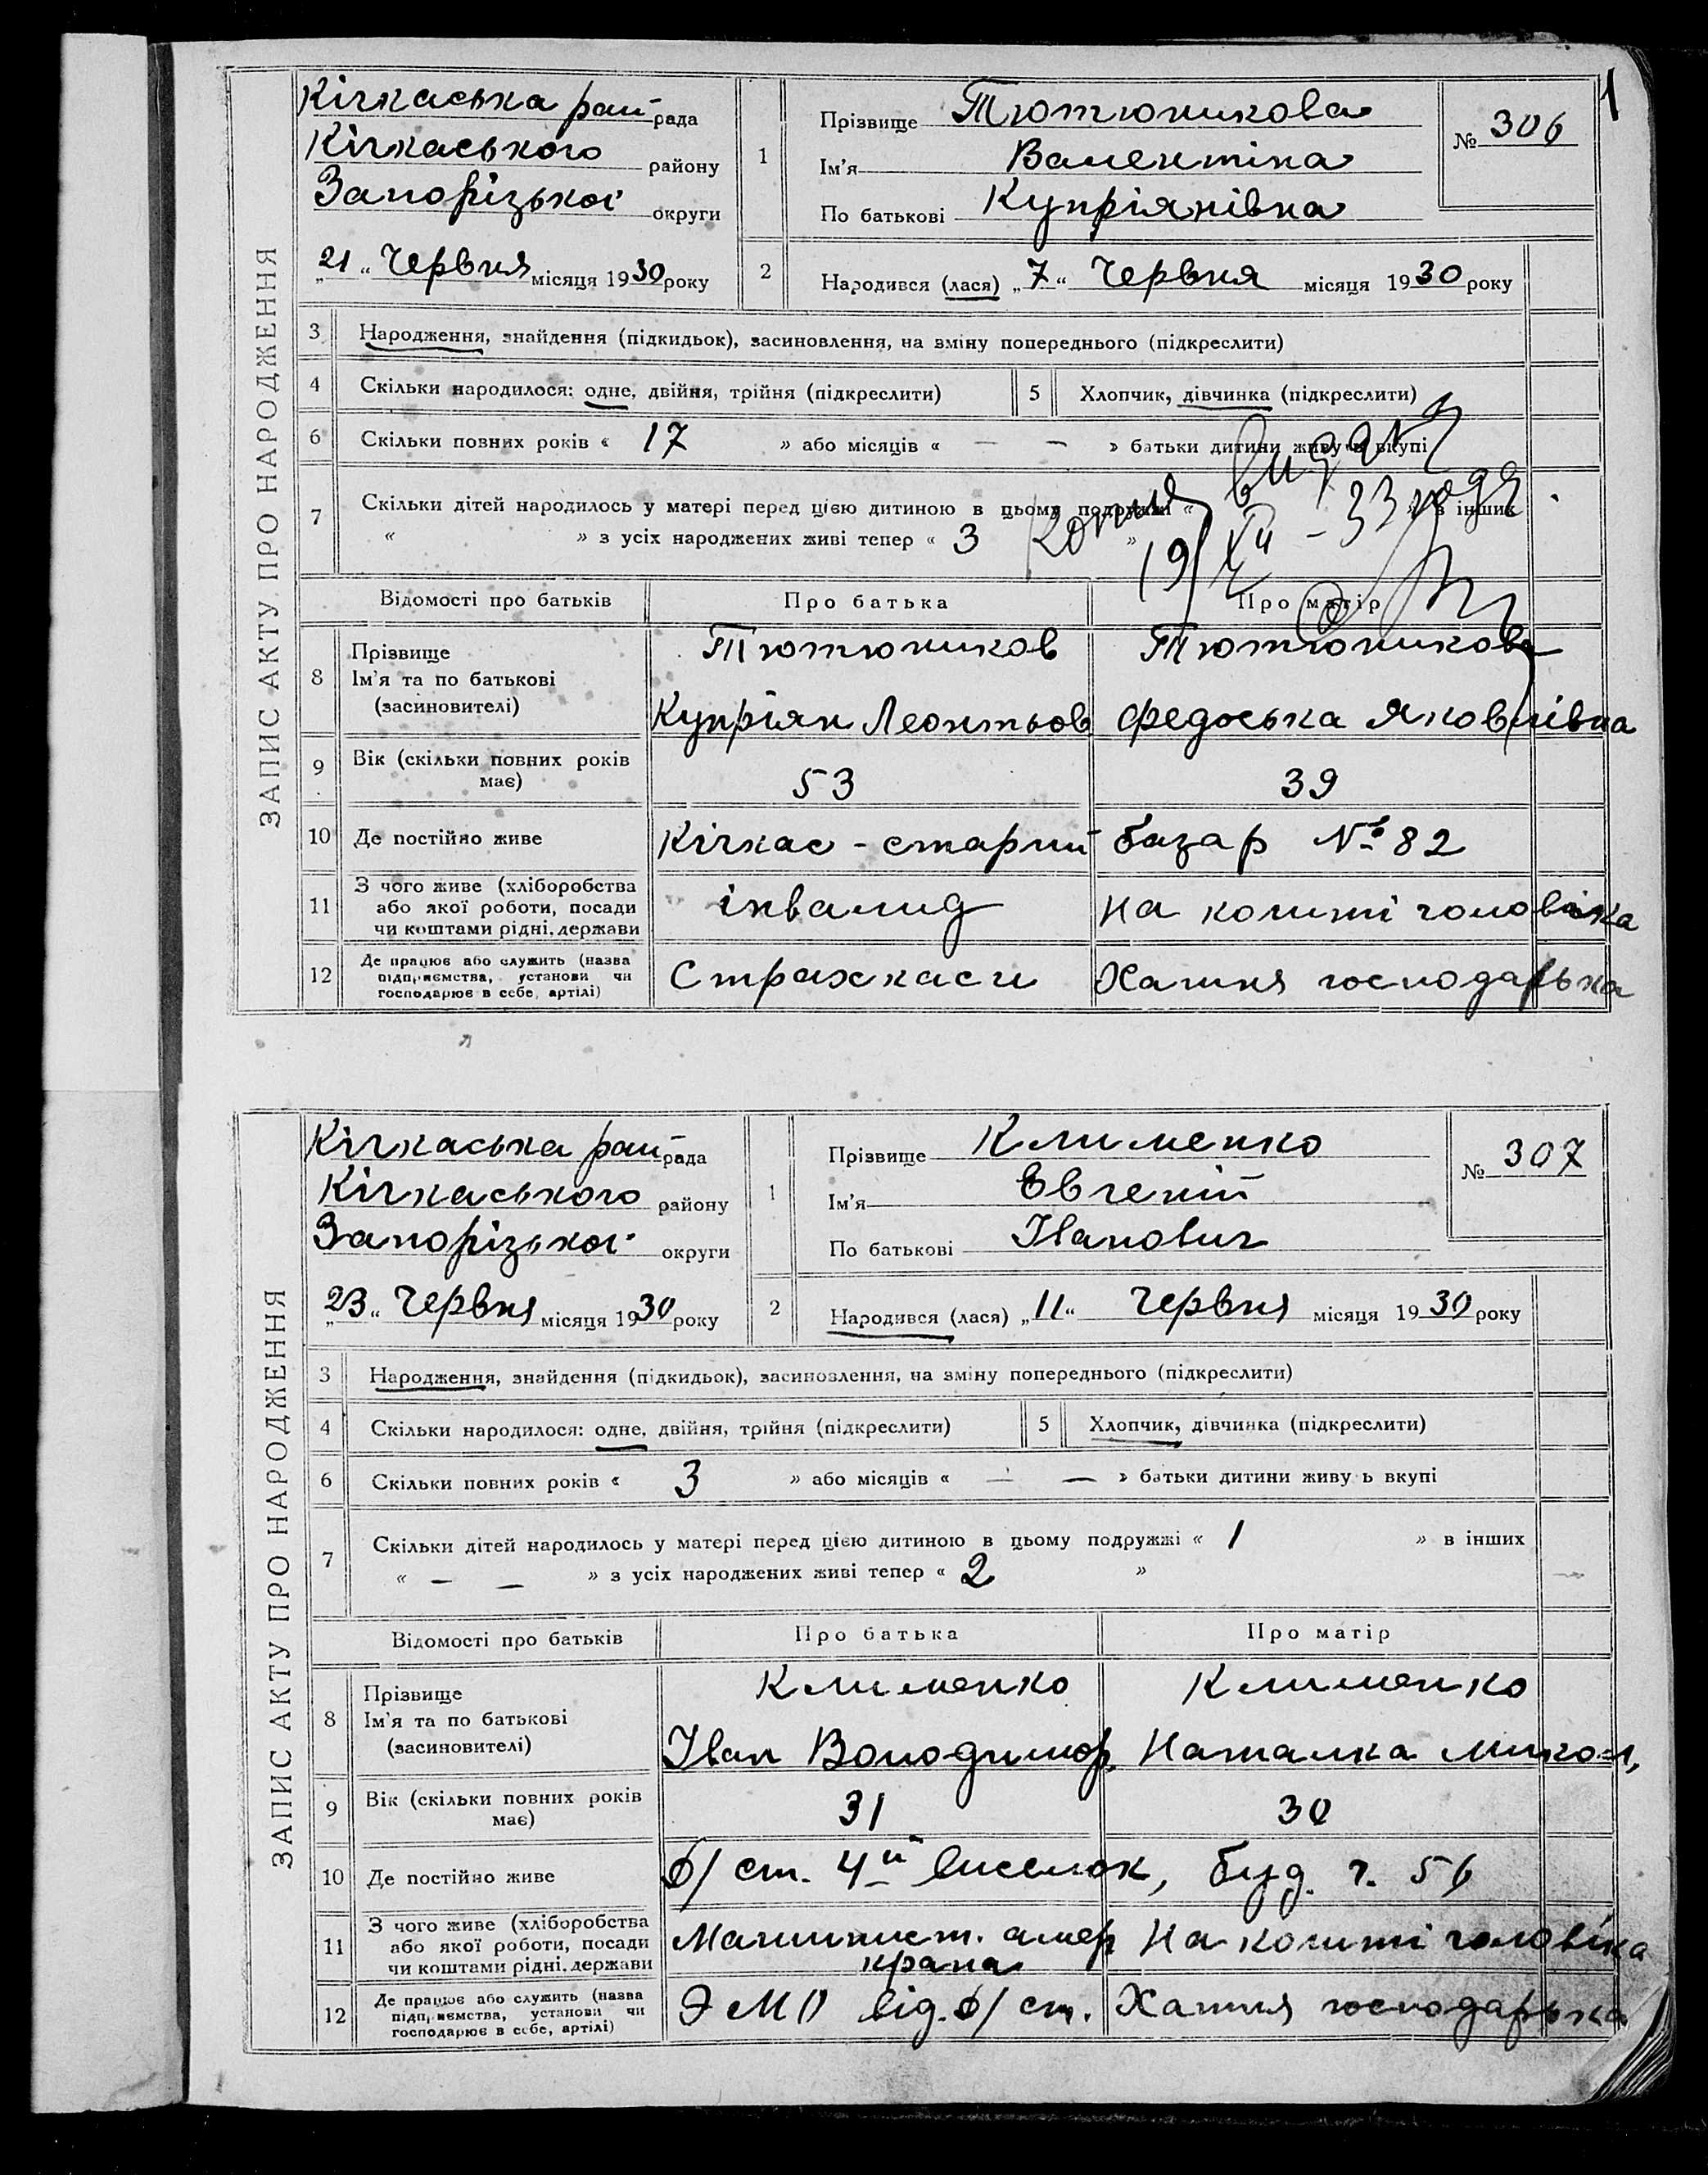 1
ЗАПИС АКТУ ПРО НАРОДЖЕННЯ
Кічкаська рай рада
Кічкаського району
Запорізької округи
„21“ Червня місяця 1930 року
1
Прізвище Тютюникова
Ім'я Валентіна
По батькові Купріянівна
№ 306
2 Народився (лася) „7“ Червня місяця 1930 року
3 Народження, знайдення (підкидьок), засиновлення, на зміну попереднього (підкреслити)
4 Скільки народилося: одне, двійня, трійня (підкреслити) 5 Хлопчик, дівчинка (підкреслити)
6 Скільки повних років « 17 » або місяців « — — » батьки дитини живуть вкупі
7 Скільки дітей народилось у матері перед цією дитиною в цьому подружжі « » в інших
« » з усіх народжених живі тепер « 3 »
19/XII - 33 года
Відомості про батьків Про батька Про матір
8 Прізвище Ім'я та по батькові (засиновителі)
Тютюников Тютюникова
Купріян Леонтьов Федоська Яковлівна
9 Вік (скільки повних років має) 53 39
10 Де постійно живе Кічкас - старий базар № 82
11 З чого живе (хліборобства або якої роботи, посади чи коштами рідні, держави інвалид На кошті чоловіка
12 Де працює або служить (назва підприємства, установи чи господарює в себе, артілі) Страхкаси Хатня господарька
ЗАПИС АКТУ ПРО НАРОДЖЕННЯ
Кічкаська рай рада
Кічкаського району
Запорізької округи
„23“ Червня місяця 1930 року
1
Прізвище Клименко
Ім'я Євгеній
По батькові Іванович
№ 307
2 Народився (лася) „11“ Червня місяця 1930 року
3 Народження, знайдення (підкидьок), засиновлення, на зміну попереднього (підкреслити)
4 Скільки народилося: одне, двійня, трійня (підкреслити) 5 Хлопчик, дівчинка (підкреслити)
6 Скільки повних років « 3 » або місяців « — — » батьки дитини живуть вкупі
7 Скільки дітей народилось у матері перед цією дитиною в цьому подружжі « 1 » в інших
« — — » з усіх народжених живі тепер « 2 »
Відомості про батьків Про батька Про матір
8 Прізвище Ім'я та по батькові (засиновителі)
Клименко Клименко
Іван Володимор. Наталка Микол,
9 Вік (скільки повних років має) 31 30
10 Де постійно живе Ф/ ст. 4й виселок, буд. ч. 56
11 З чого живе (хліборобства або якої роботи, посади чи коштами рідні, держави Машинист. амер крана На кошті чоловіка
12 Де працює або служить (назва підприємства, установи чи господарює в себе, артілі) ЭМО від. Ф/ ст. Хатня господарька